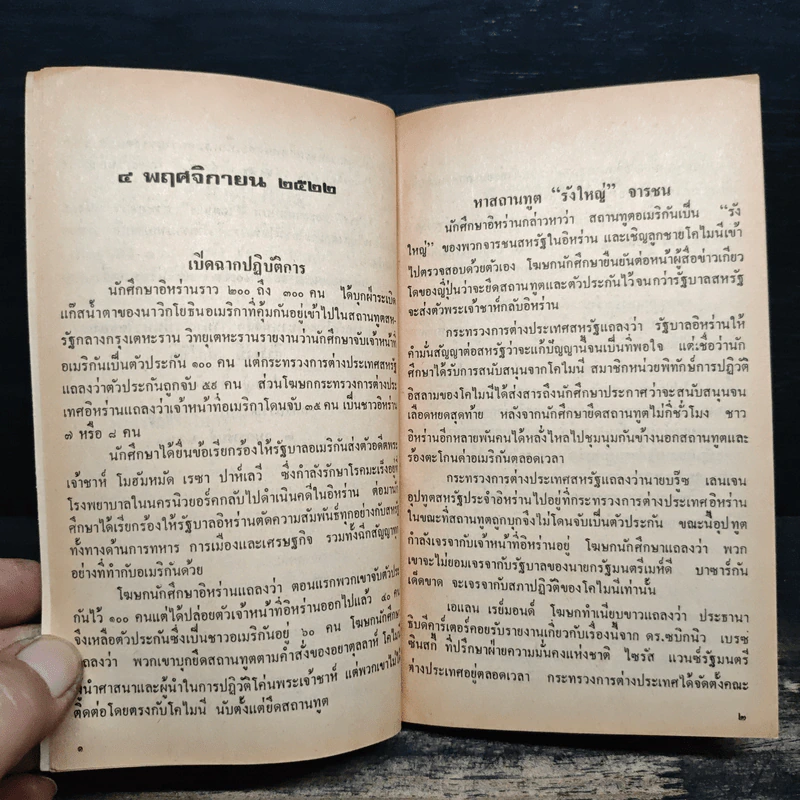 ๔ พฤศจิกายน ๒๕๒๒
เปิดฉากปฏิบัติการ
นักศึกษาอิหร่านราว ๒๐๐ ถึง ๓๐๐ คน ได้บุกฝ่าระเบิด
แก๊สน้ำตาของนาวิกโยธินอเมริกาที่คุ้มกันอยู่เข้าไปในสถานทูตสห-
รัฐกลางกรุงเตหะราน วิทยุเตหะรานรายงานว่านักศึกษาจับเจ้าหน้าที่
อเมริกันเป็นตัวประกัน ๑๐๐ คน แต่กระทรวงการต่างประเทศสหรัฐ
แถลงว่าตัวประกันถูกจับ ๕๙ คน ส่วนโฆษกกระทรวงการต่างประ-
เทศอิหร่านแถลงว่าเจ้าหน้าที่อเมริกาโดนจับ ๓๕ คน เป็นชาวอิหร่าน
๗ หรือ ๘ คน
นักศึกษาได้ยื่นข้อเรียกร้องให้รัฐบาลอเมริกันส่งตัวอดีตพระ-
เจ้าชาห์ โมฮัมหมัด เรซา ปาห์เลวี ซึ่งกำลังรักษาโรคมะเร็งอยู่ที่
โรงพยาบาลในนครนิวยอร์คกลับไปดำเนินคดีในอิหร่าน ต่อมานัก
ศึกษาได้เรียกร้องให้รัฐบาลอิหร่านตัดความสัมพันธ์ทุกอย่างกับสหรัฐ
ทั้งทางด้านการทหาร การเมืองและเศรษฐกิจ รวมทั้งฉีกสัญญาทุก
อย่างที่ทำกับอเมริกันด้วย
โฆษกนักศึกษาอิหร่านแถลงว่า ตอนแรกพวกเขาจับตัวประ-
กันไว้ ๑๐๐ คนแต่ได้ปล่อยตัวเจ้าหน้าที่อิหร่านออกไปแล้ว ๔๐ คน
จึงเหลือตัวประกันซึ่งเป็นชาวอเมริกันอยู่ ๖๐ คน โฆษกนักศึกษา
แถลงว่า พวกเขาบุกยึดสถานทูตตามคำสั่งของอยาตุลลาห์ โคไมนี
ผู้นำศาสนาและผู้นำในการปฏิวัติโค่นพระเจ้าชาห์ แต่พวกเขาไม่ได้
ติดต่อโดยตรงกับโคไมนี นับตั้งแต่ยึดสถานทูต
๑
หาสถานทูต “รังใหญ่” จารชน
นักศึกษาอิหร่านกล่าวหาว่า สถานทูตอเมริกันเป็น “รัง
ใหญ่” ของพวกจารชนสหรัฐในอิหร่าน และเชิญลูกชายโคไมนีเข้า
ไปตรวจสอบด้วยตัวเอง โฆษกนักศึกษายืนยันต่อหน้าผู้สื่อข่าวเกียว
โดของญี่ปุ่นว่าจะยึดสถานทูตและตัวประกันไว้จนกว่ารัฐบาลสหรัฐ
จะส่งตัวพระเจ้าชาห์กลับอิหร่าน
กระทรวงการต่างประเทศสหรัฐแถลงว่า รัฐบาลอิหร่านให้
คำมั่นสัญญาต่อสหรัฐว่าจะแก้ปัญญานี้จนเป็นที่พอใจ แต่เชื่อว่านัก
ศึกษาได้รับการสนับสนุนจากโคไมนี สมาชิกหน่วยพิทักษ์การปฏิวัติ
อิสลามของโคไมนีได้ส่งสารถึงนักศึกษาประกาศว่าจะสนับสนุนจน
เลือดหยดสุดท้าย หลังจากนักศึกษายึดสถานทูตไม่กี่ชั่วโมง ชาว
อิหร่านอีกหลายพันคนได้หลั่งไหลไปชุมนุมกันข้างนอกสถานทูตและ
ร้องตะโกนด่าอเมริกันตลอดเวลา
กระทรวงการต่างประเทศสหรัฐแถลงว่านายบรู๊ซ เลนเจน
อุปทูตสหรัฐประจำอิหร่านไปอยู่ที่กระทรวงการต่างประเทศอิหร่าน
ในขณะที่สถานทูตถูกบุกจึงไม่โดนจับเป็นตัวประกัน ขณะนี้อุปทูต
กำลังเจรจากับเจ้าหน้าที่อิหร่านอยู่ โฆษกนักศึกษาแถลงว่า พวก
เขาจะไม่ยอมเจรจากับรัฐบาลของนายกรัฐมนตรีเมห์ดี บาซาร์กัน
เด็ดขาด จะเจรจากับสภาปฏิวัติของโคไมนีเท่านั้น
เอแลน เรย์มอนด์ โฆษกทำเนียบขาวแถลงว่า ประธานา
ธิบดีคาร์เตอร์คอยรับรายงานเกี่ยวกับเรื่องนี้จาก ดร.ซบิกนิว เบรซ
ซินสกี้ ที่ปรึกษาฝ่ายความมั่นคงแห่งชาติ ไซรัส แวนซ์รัฐมนตรี
ต่างประเทศอยู่ตลอดเวลา กระทรวงการต่างประเทศได้จัดตั้งคณะ
๒